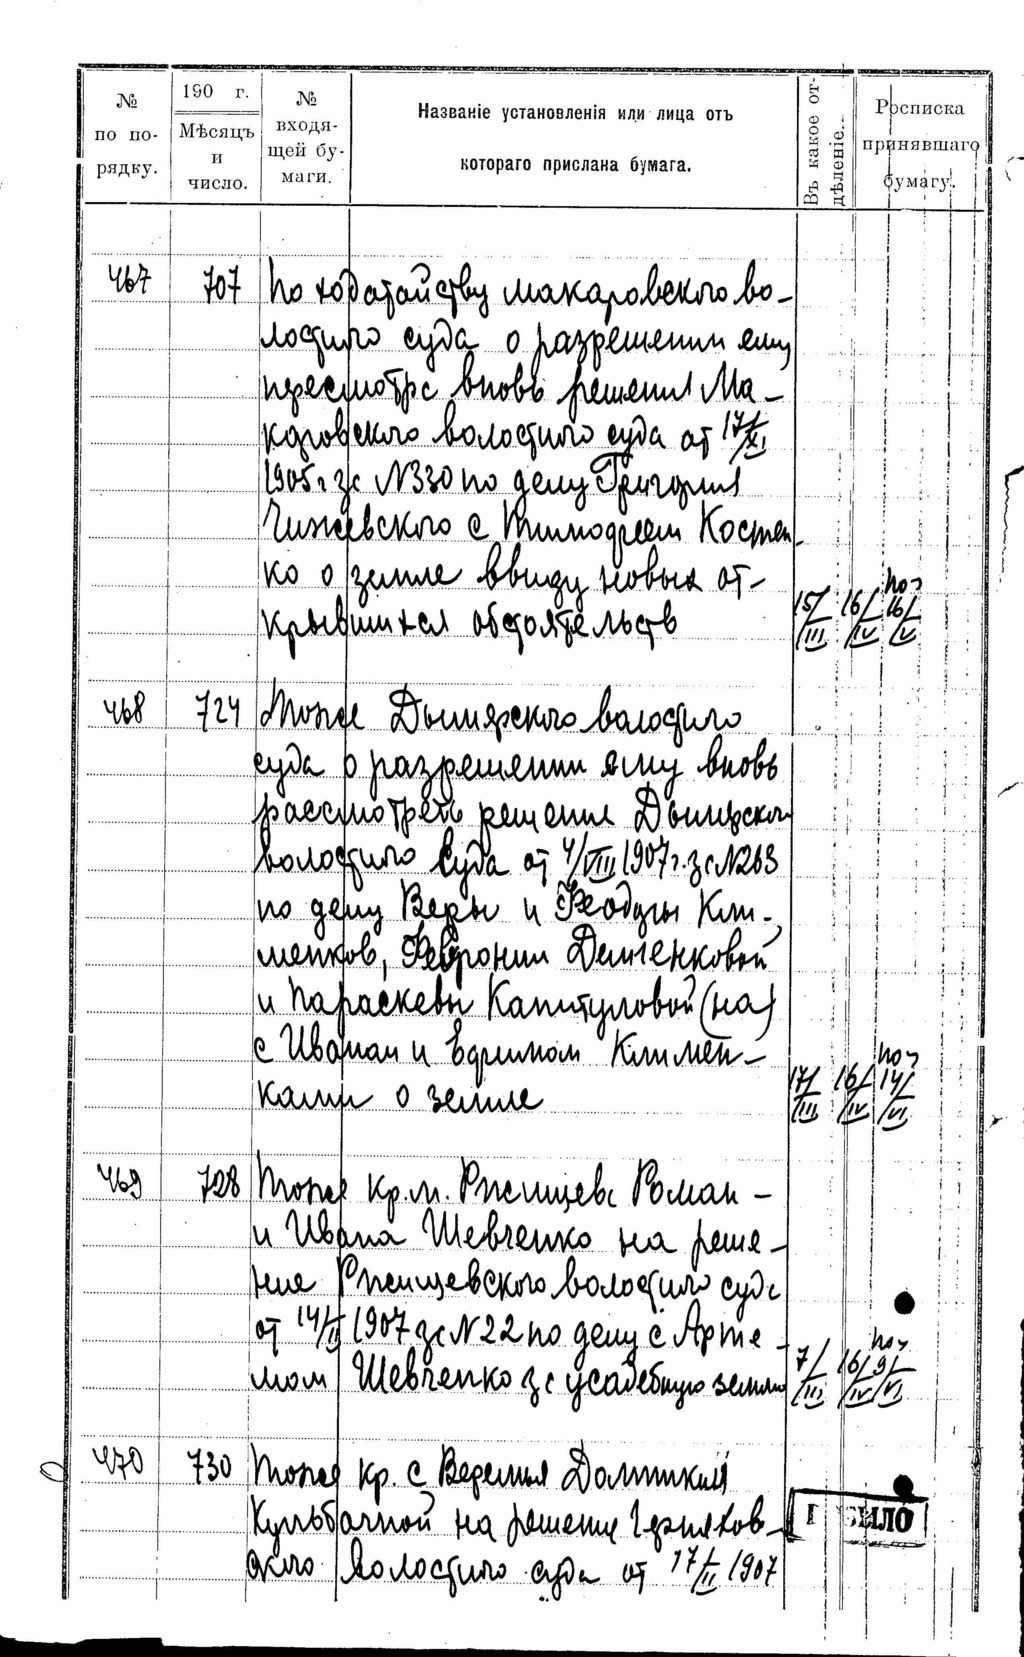 № по по-рядку.
190 г. Мѣсяцъ и число.
№ входя-щей бу-маги.
Названіе установленія или лица отъ
котораго прислана бумага.
Въ какое от-дѣленіе.
Росписка принявшаго бумагу.
467 707 По ходатайству Макаровского во-
лостного суда о разрешении ему
пересмотре вновь решения Ма-
каровского волостного суда от 17/XI
1905 г за N330 по делу Григория
Чижевского с Тимофеем Костен-
ко о земле ввиду новых от-
крывшихся обстоятельств 15/III 16/IV 16/V
468 724 Тоже Дымерского волостного
суда о разрешении ему вновь
рассмотреть решения Дымерского
волостного суда от 4/VIII 1907 г. за N263
по делу Веры и Феодоры Кли-
менков, Февронии Демченковой
и Параскевы Капитуловой (на)
с Иваном и Ефимом Климен-
ками о земле 17/III 16/IV 14/VI
469 728 Тоже кр. м. Ржищева Роман
и Ивана Шевченко на реше-
ние Ржищевского волостного суда
от 14/II 1907 за N22 по делу с Арте-
мом Шевченко за усадебную землю 7/III 16/IV 9/VI
470 730 Тоже кр. с. Веремья Домникии
Кульбачной на решение Черняхов-
ского волостного суда от 17/II 1907